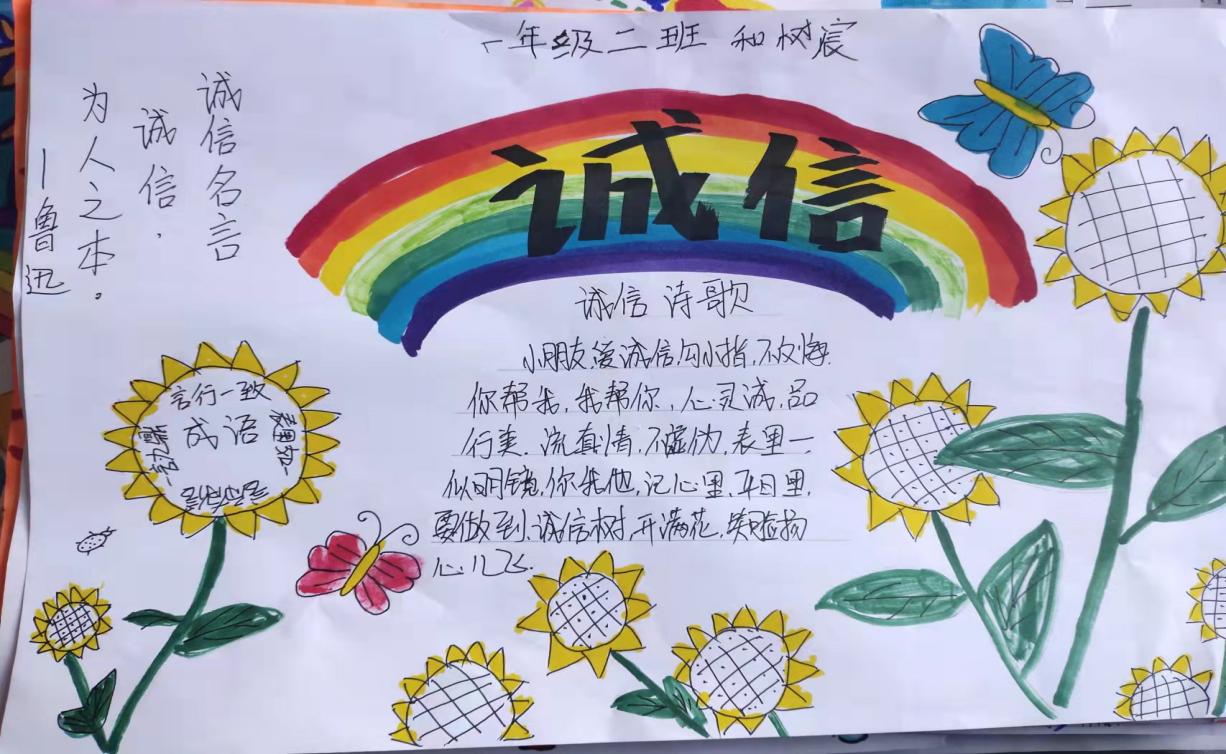 一年级二班 和树宸
诚信
诚信名言
诚信，
为人之本。
—鲁迅
诚信诗歌
小朋友，爱诚信，勾小指，不反悔.
你帮我，我帮你，心灵诚，品
行美.流真情，不虚伪，表里一
似明镜，你我他，记心里，平日里，
要做到，诚信树，开满花，笑脸扬
心儿飞.
言行一致
成语
表里如一
一言九鼎